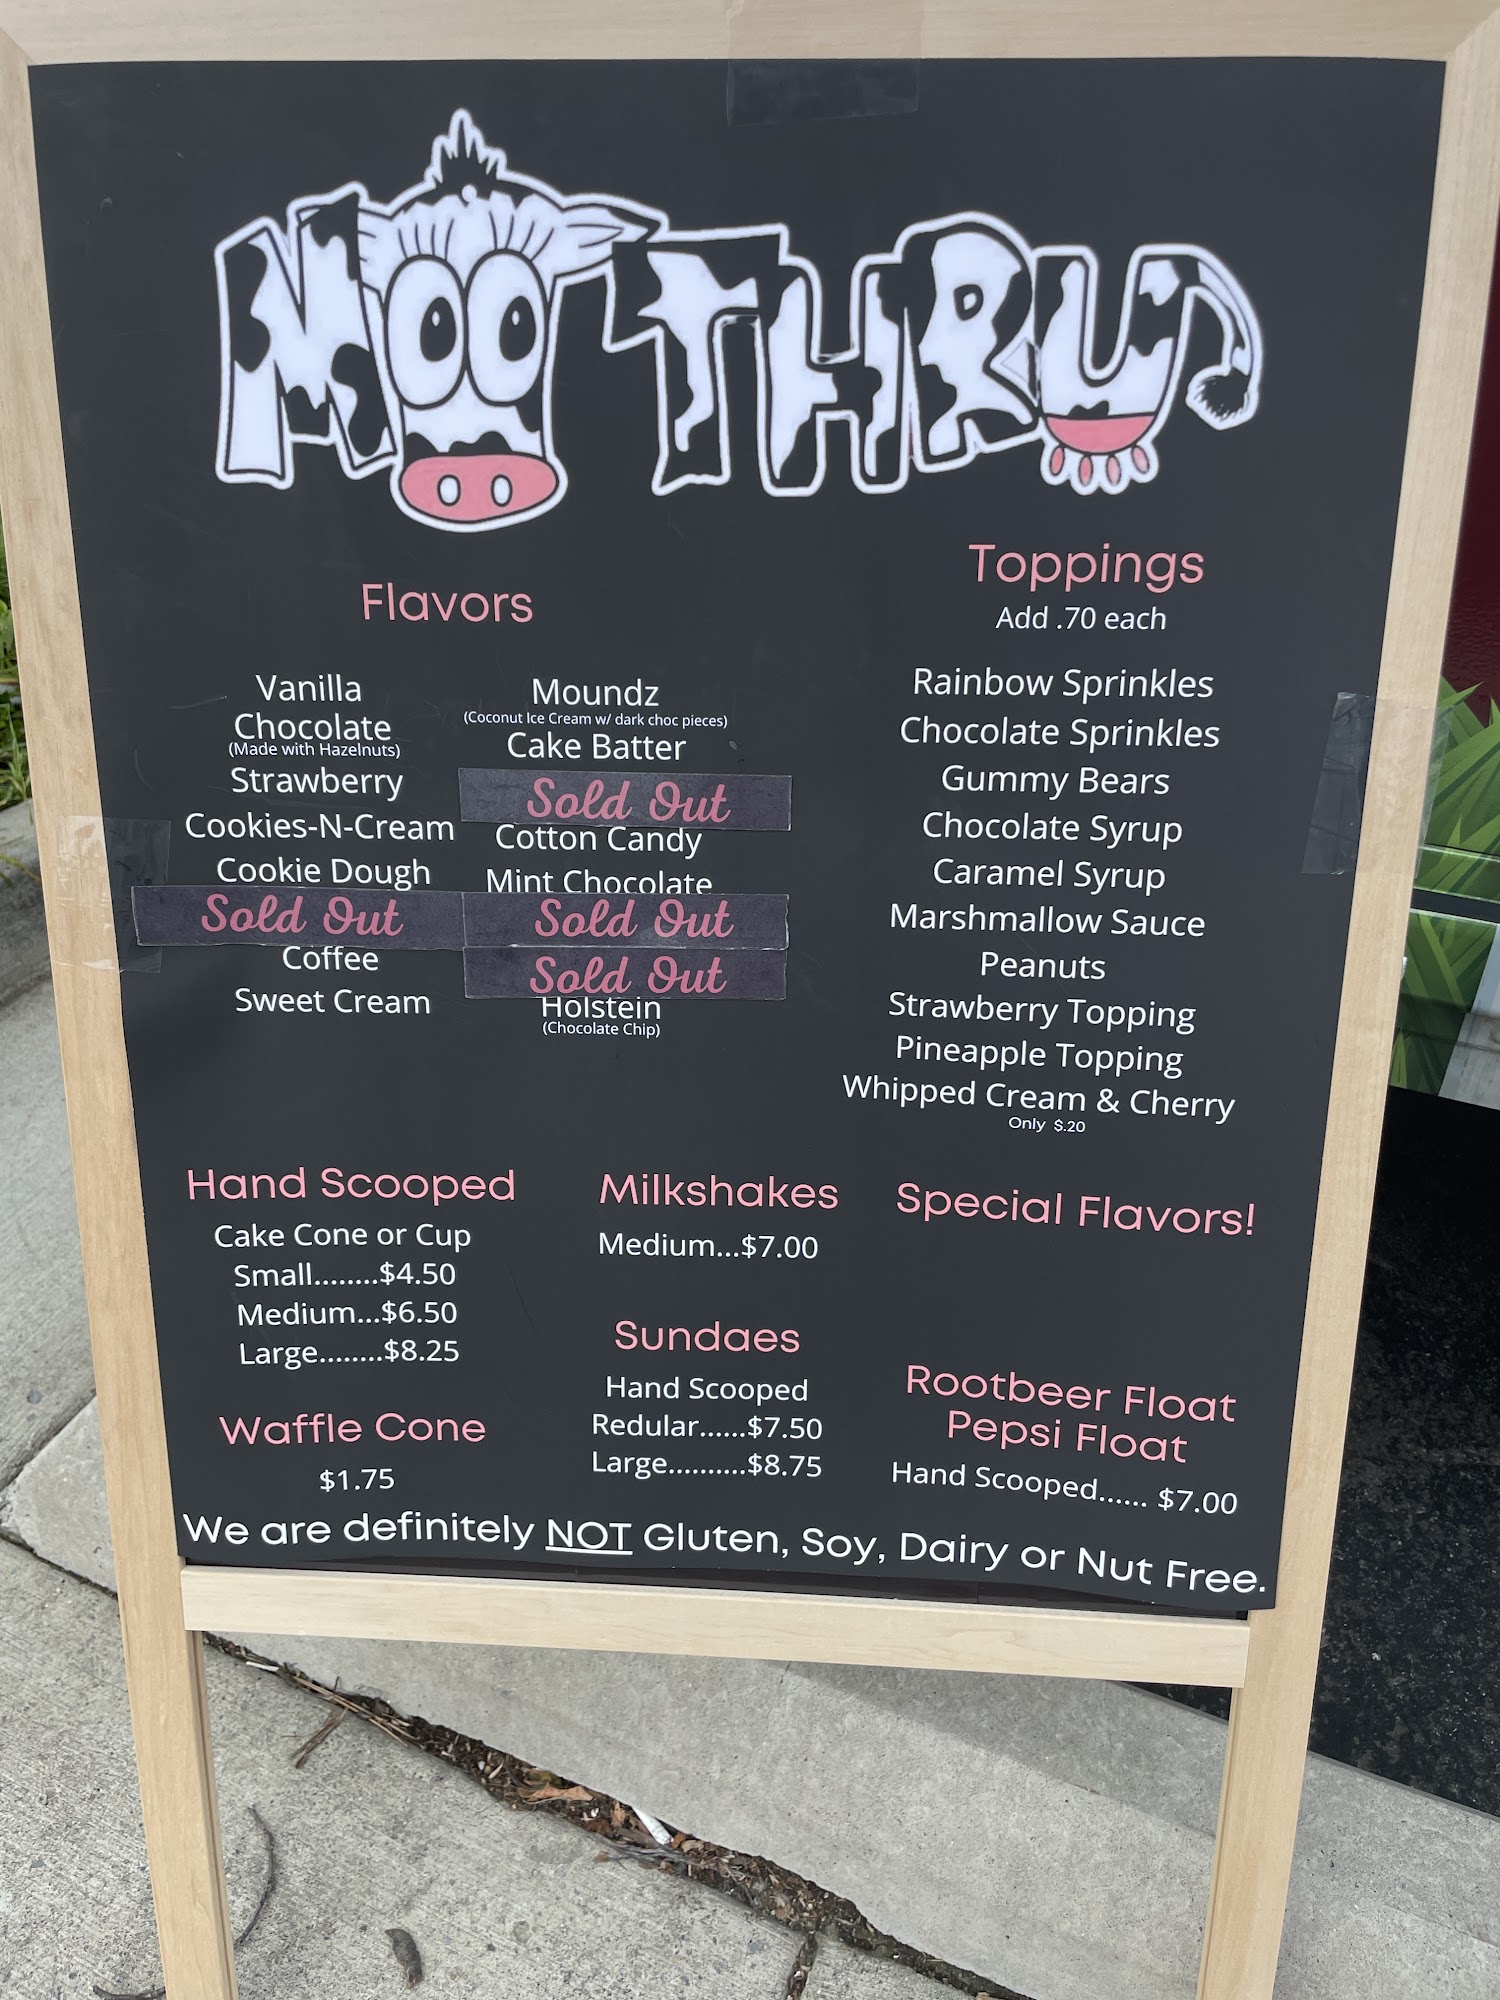 MOO THRU
Flavors
Vanilla
Chocolate
(Made with Hazelnuts)
Strawberry
Cookies-N-Cream
Cookie Dough
Sold Out
Coffee
Sweet Cream
Moundz
(Coconut Ice Cream w/ dark choc pieces)
Cake Batter
Sold Out
Cotton Candy
Mint Chocolate
Sold Out
Sold Out
Holstein
(Chocolate Chip)
Toppings
Add .70 each
Rainbow Sprinkles
Chocolate Sprinkles
Gummy Bears
Chocolate Syrup
Caramel Syrup
Marshmallow Sauce
Peanuts
Strawberry Topping
Pineapple Topping
Whipped Cream & Cherry
Only $.20
Hand Scooped
Cake Cone or Cup
Small........$4.50
Medium...$6.50
Large........$8.25
Waffle Cone
$1.75
Milkshakes
Medium...$7.00
Sundaes
Hand Scooped
Redular......$7.50
Large..........$8.75
Special Flavors!
Rootbeer Float
Pepsi Float
Hand Scooped...... $7.00
We are definitely NOT Gluten, Soy, Dairy or Nut Free.